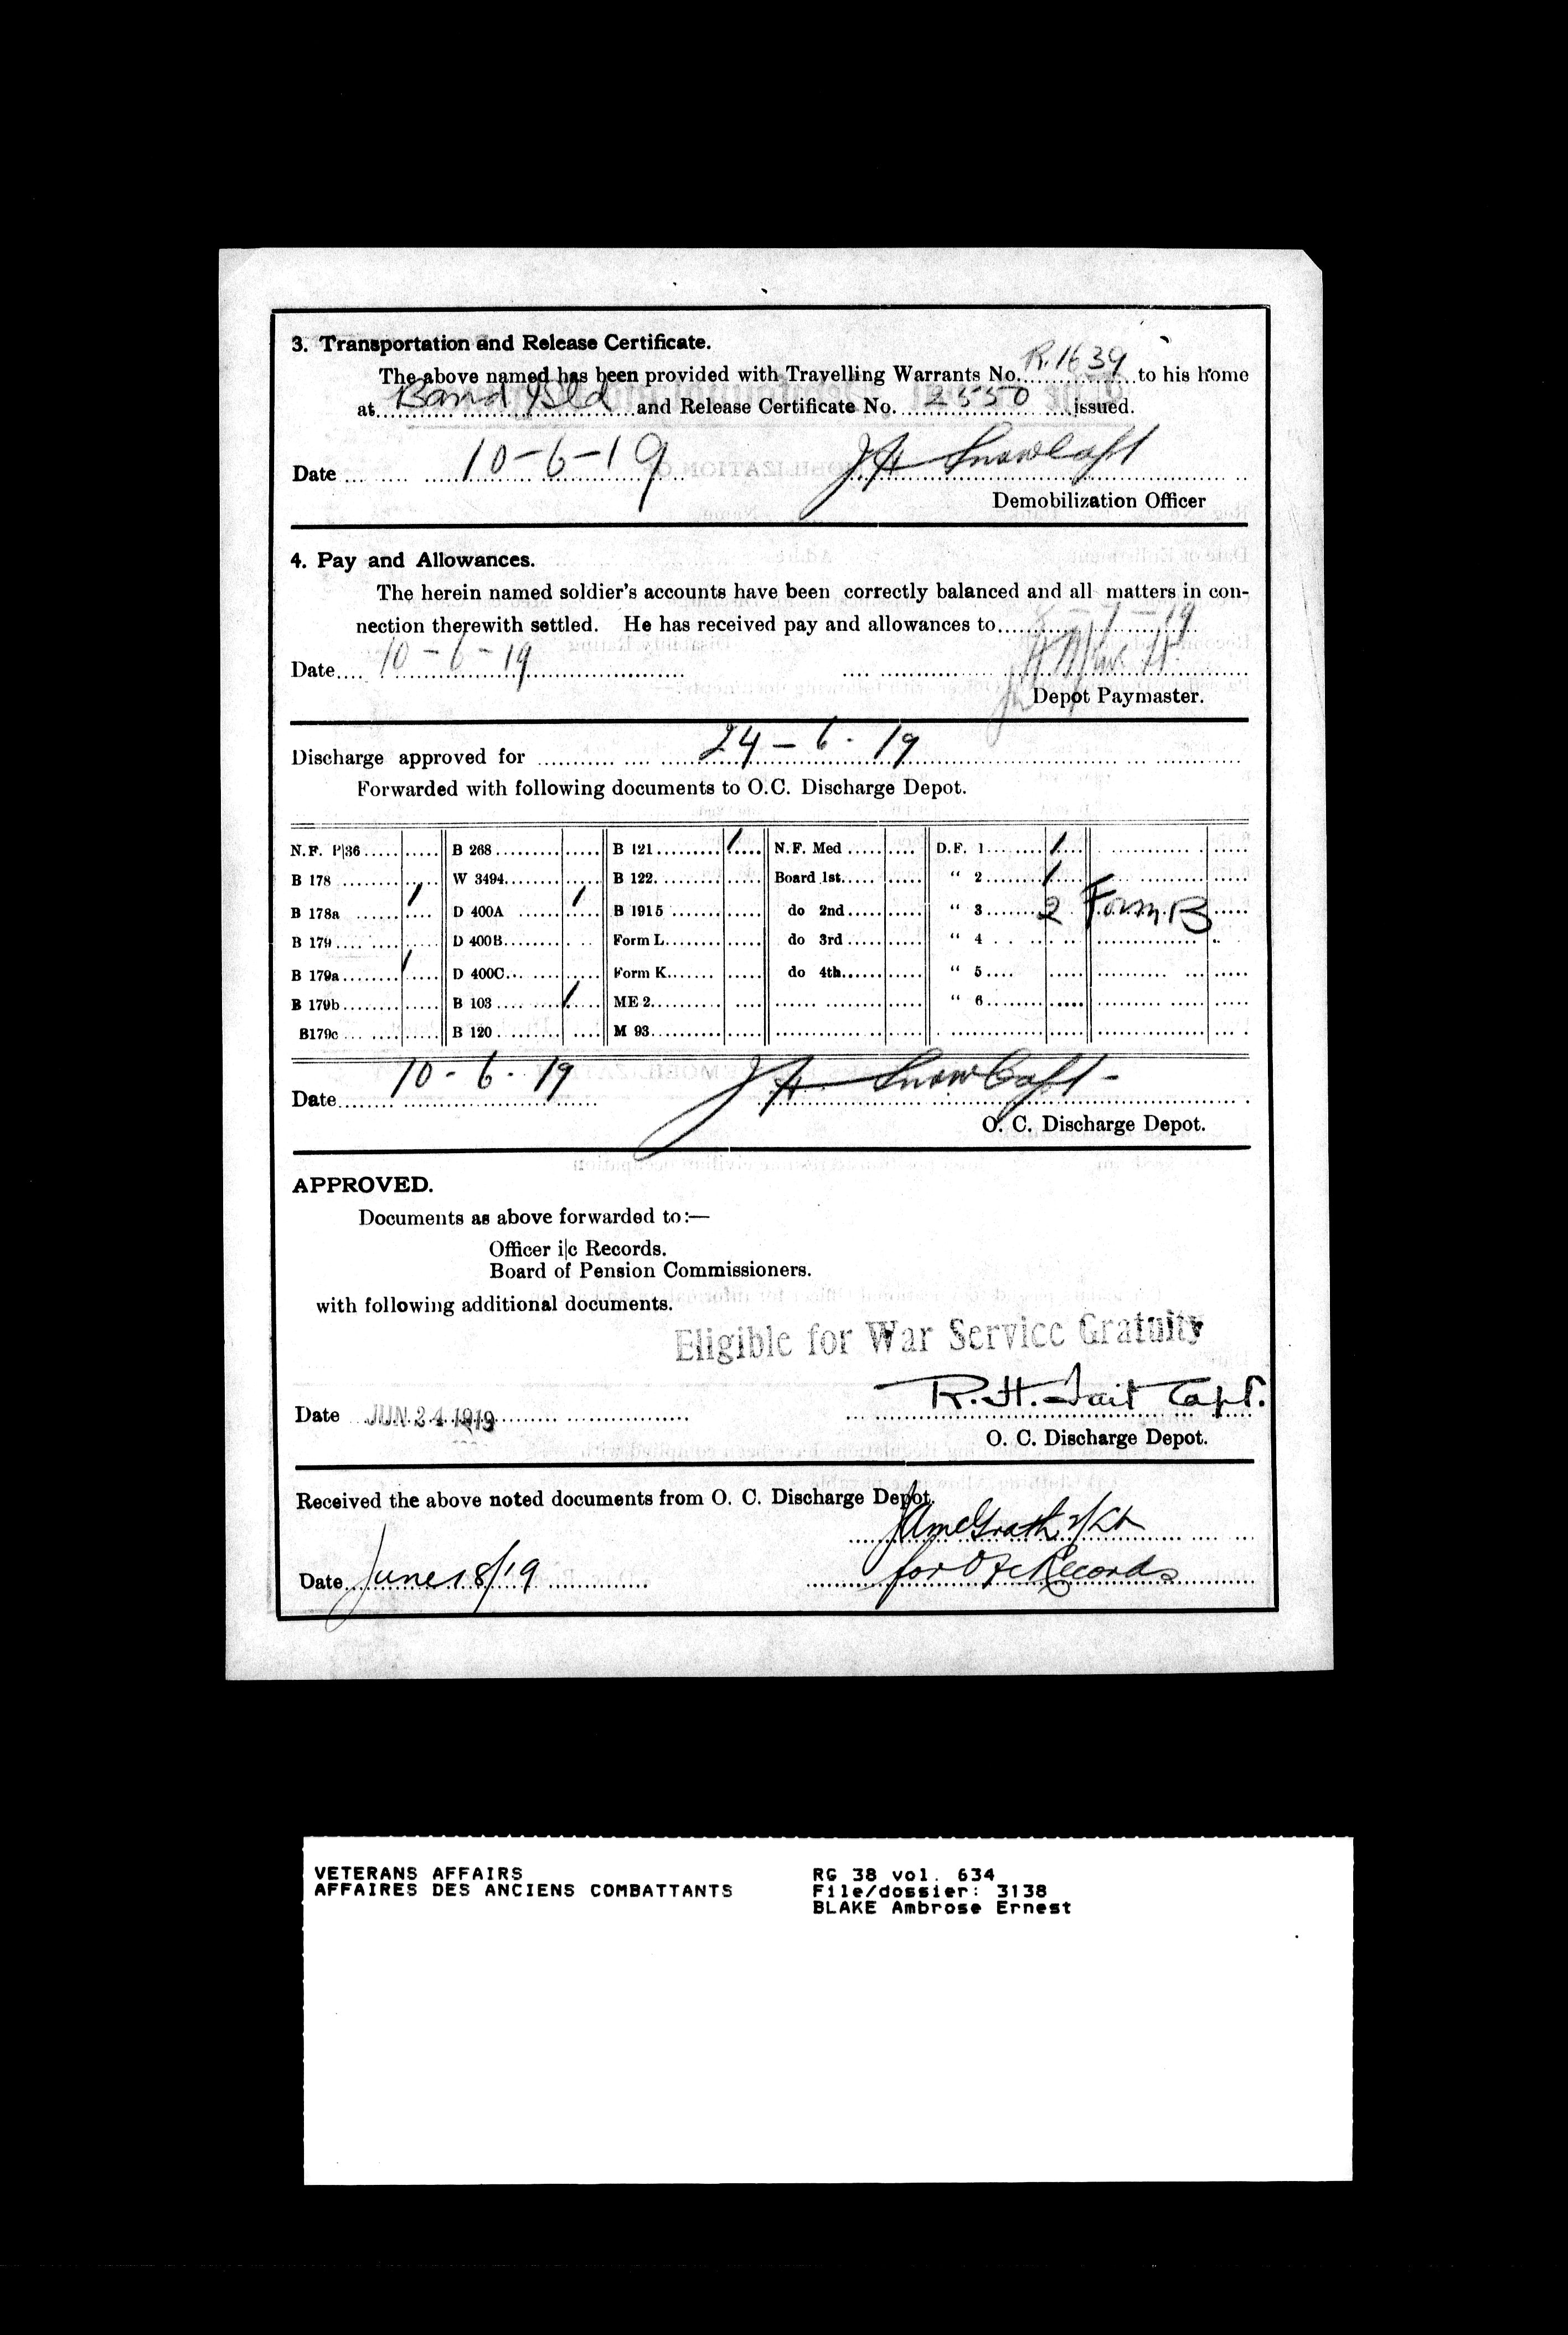 3. Transportation and Release Certificate.
The above named has been provided with Travelling Warrants No. R.1639 to his home
at and Release Certificate No. 2550 issued.
Date 10-6-19
Demobilization Officer
4. Pay and Allowances.
The herein named soldier's accounts have been correctly balanced and all matters in con-
nection therewith settled. He has received pay and allowances to 8-7-19
Date 10-6-19
Depot Paymaster.
Discharge approved for 24-6-19
Forwarded with following documents to O.C. Discharge Depot.
N.F. P|36 B 268 B 121 / N.F. Med D.F. 1 /
B 178 W 3494 B 122. Board 1st " 2 /
B 178a / D 400A / B 1915 do 2nd " 3 2 Form B
B 179 D 400B Form L do 3rd " 4
B 179a / D 400C Form K do 4th " 5
B 179b B 103 / ME 2 " 6
B179c B 120 M 93
Date 10-6-19
O. C. Discharge Depot.
APPROVED.
Documents as above forwarded to:—
Officer i|c Records.
Board of Pension Commissioners.
with following additional documents.
Eligible for War Service Gratuity
R.H. Tait Capt.
Date JUN 24 1919
O. C. Discharge Depot.
Received the above noted documents from O. C. Discharge Depot.
JAMcGrath Lt
Date June 18/19 for O i/c Records
VETERANS AFFAIRS RG 38 vol. 634
AFFAIRES DES ANCIENS COMBATTANTS File/dossier: 3138
BLAKE Ambrose Ernest